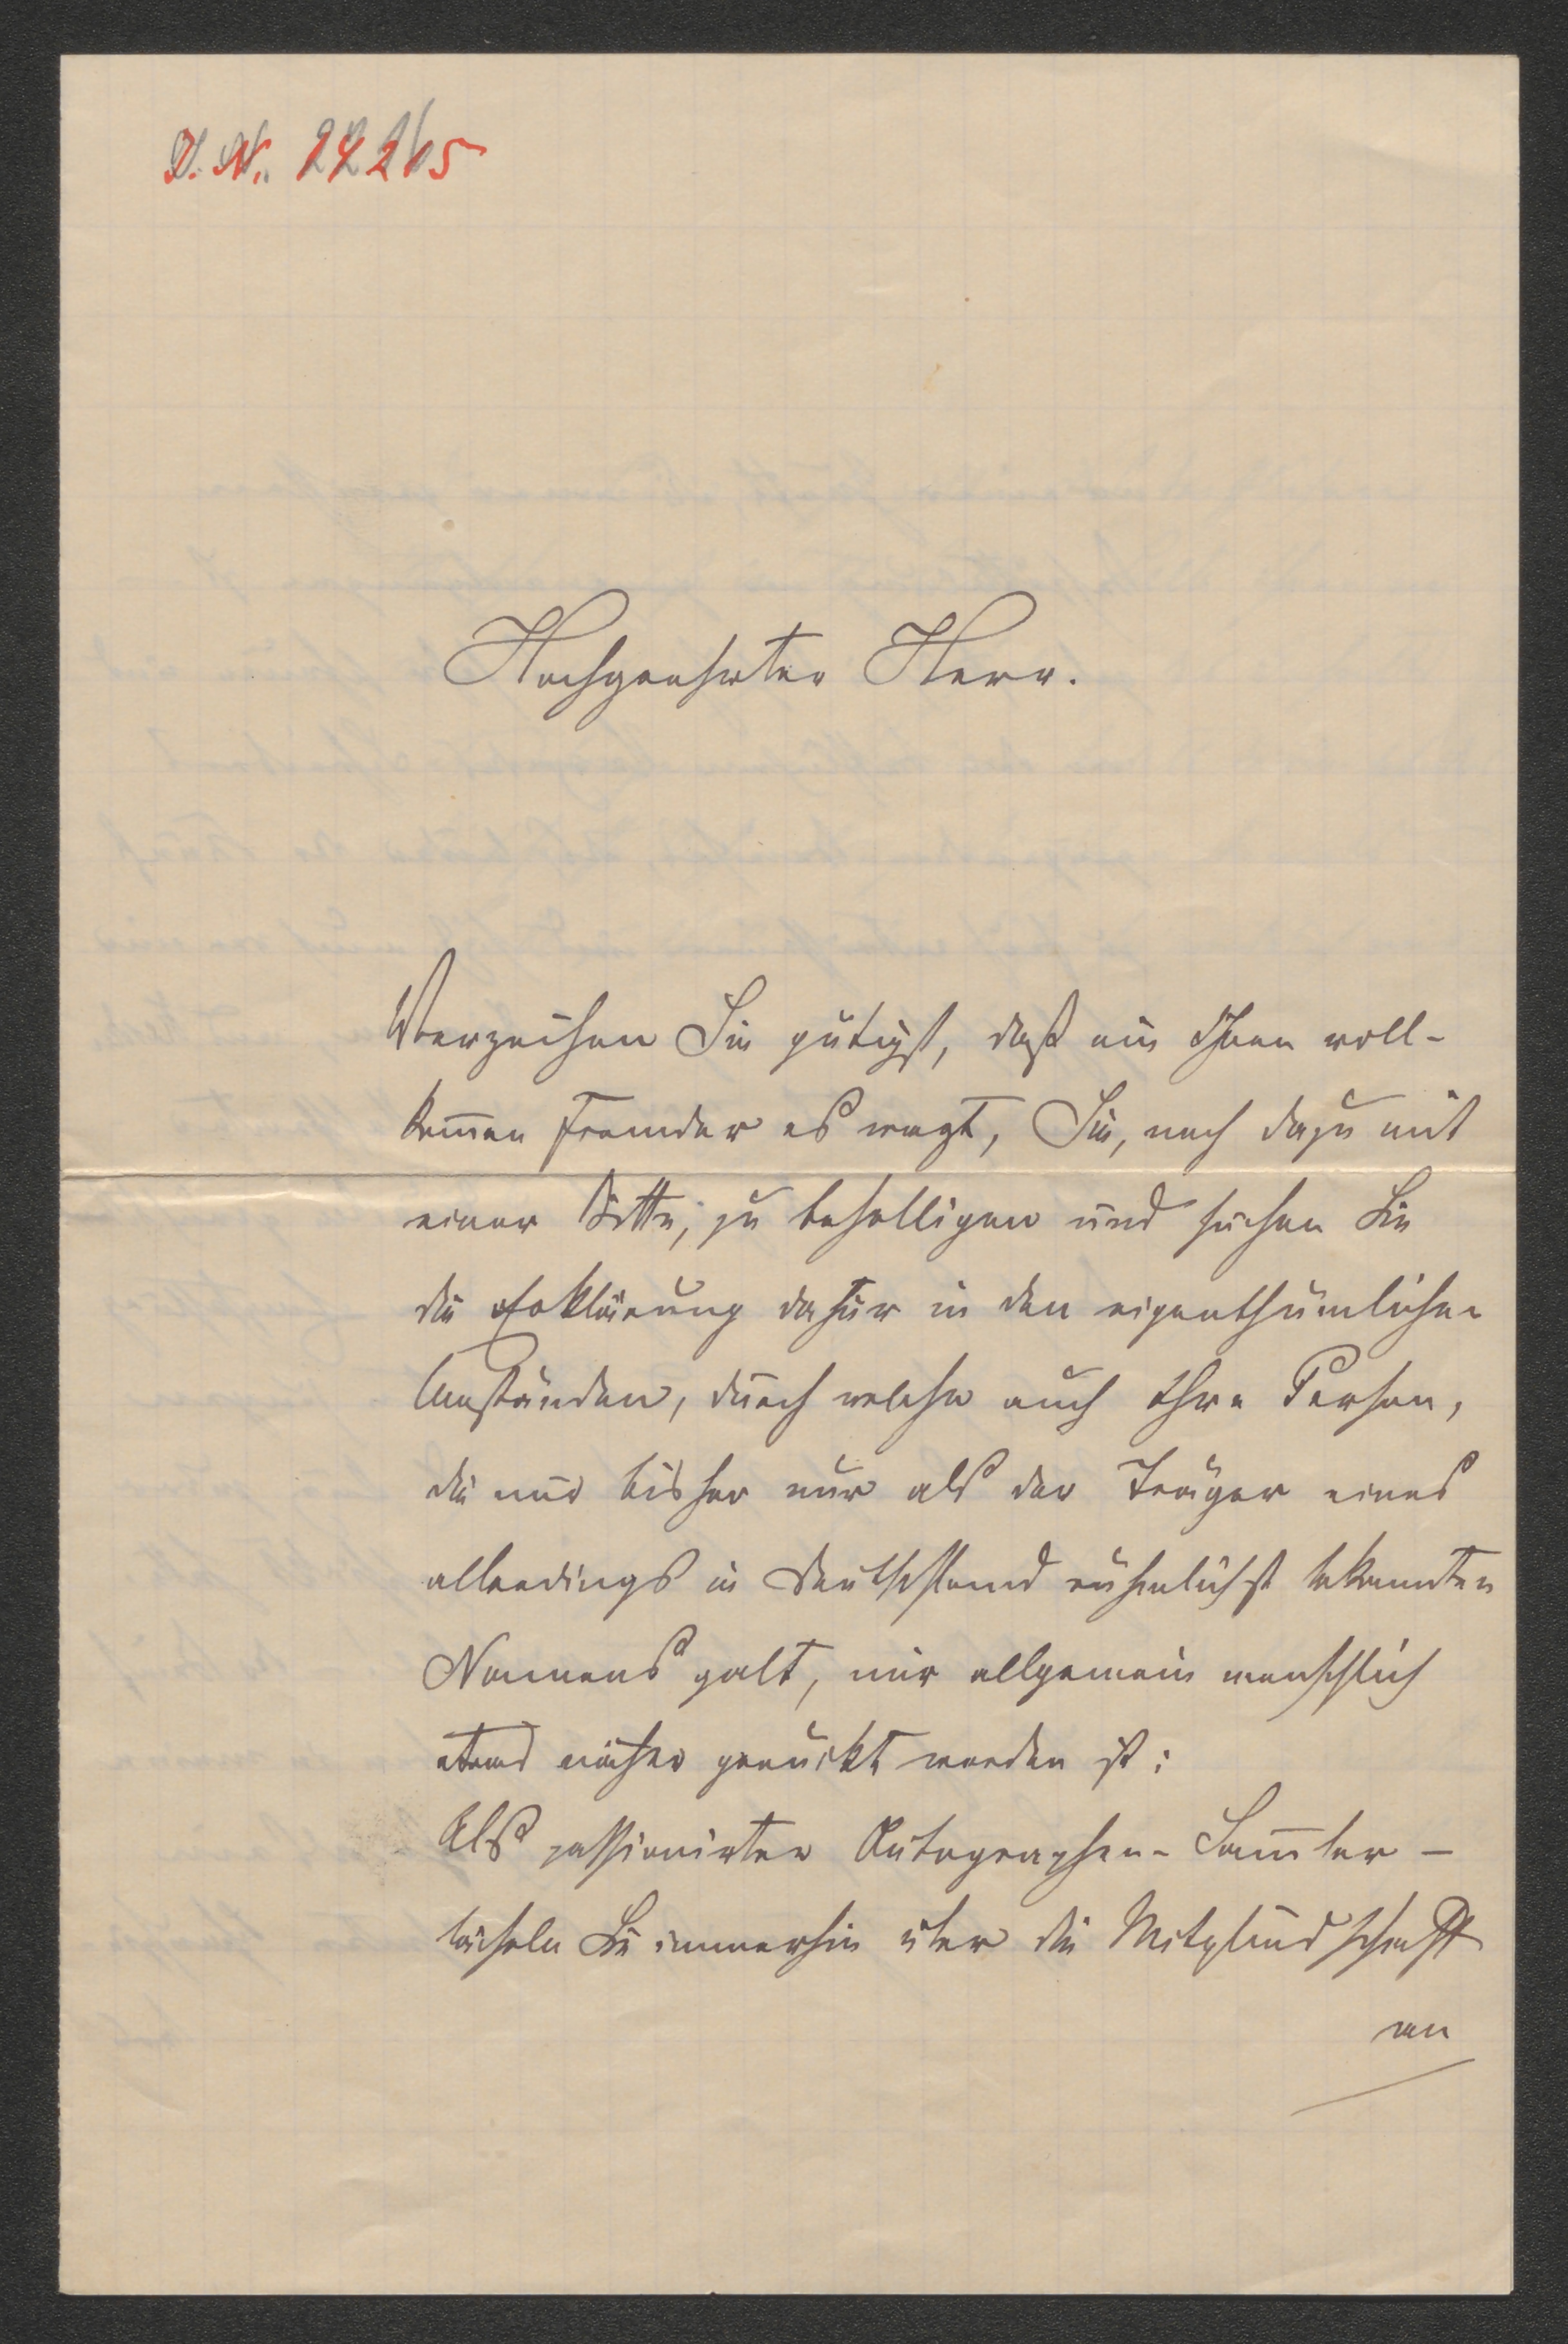 J. N. 24265
Hochgeehrter Herr.
Verzeihen Sie gütigst, daß ein Ihnen voll-
kom̅en Fremder es wagt, Sie, noch dazu mit
einer Bitte, zu behelligen und suchen Sie
die Erklärung dafür in den eigenthümlichen
Umständen, durch welche auch Ihre Person,
die mir bisher nur als der Träger eines
allerdings in Deutschland rühmlichst bekannten
Namens galt, mir allgemein menschlich
etwas näher gerückt worden ist:
Als passionirter Autographen-Sam̅ler –
lächeln Sie immerhin über die Mitgliedschaft
an